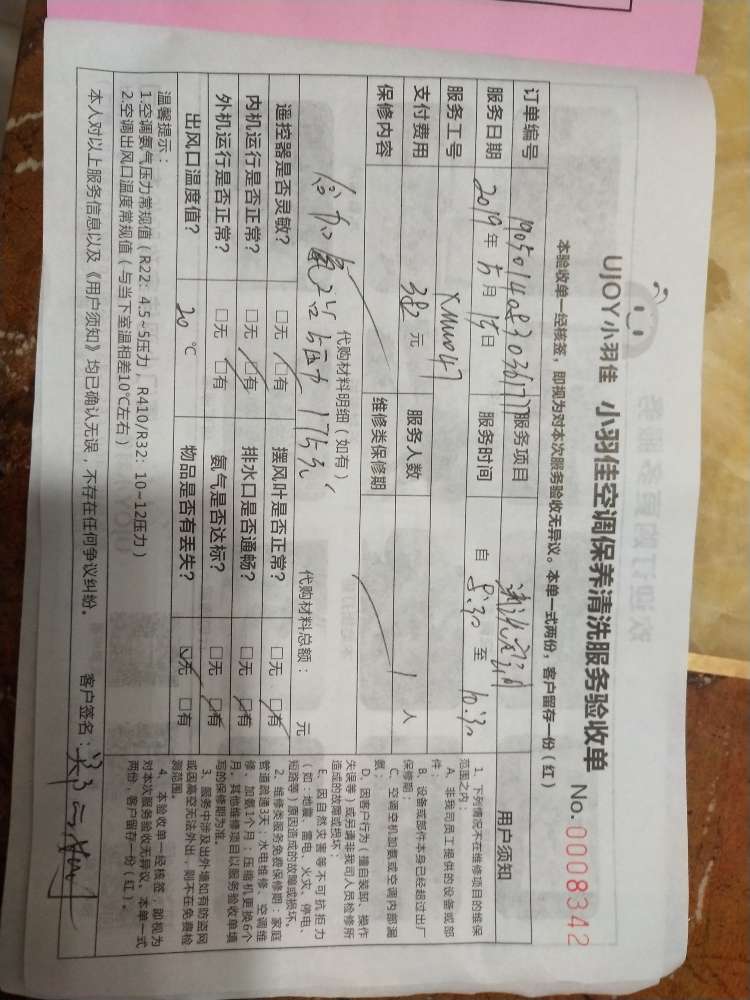 UJOY小羽佳 小羽佳空调保养清洗服务验收单
No. 0008342
本验收单一经核签，即视为对本次服务验收无异议。本单一式两份，客户留存一份（红）
订单编号 服务项目
服务日期 2019年5月15日 服务时间 自 8:30 至 10:30
服务工号 XMuv047
支付费用 382 元 服务人数 1 人
保修内容 维修类保修期
代购材料明细（如有） 代购材料总额： 元
遥控器是否灵敏？ □无 □有 摆风叶是否正常？ □无 □有
内机运行是否正常？ □无 □有 排水口是否通畅？ □无 □有
外机运行是否正常？ □无 □有 氨气是否达标？ □无 □有
出风口温度值？ 20 ℃ 物品是否有丢失？ □无 □有
温馨提示：
1.空调氨气压力常规值（R22: 4.5~5压力，R410/R32: 10~12压力）
2.空调出风口温度常规值（与当下室温相差10℃左右）
本人对以上服务信息以及《用户须知》均已确认无误，不存在任何争议纠纷。
客户签名：
用户须知
1、下列情况不在维修项目的维保
范围之内：
A、非我司员工提供的设备或部
件；
B、设备或部件本身已经超过出厂
保修期；
C、空调空机加氨或空调内部漏
氨；
D、因客户行为（擅自装卸、操作
失误等）或另请非我司人员检修所
造成的故障或损坏；
E、因自然灾害等不可抗拒力
（如：地震、雷电、火灾、停电、
短路等）原因造成的故障或损坏。
2、维修类服务免费保修期：家庭
管道疏通3天；水电维修、空调维
修、加氨1个月；压缩机更换6个
月。其他维修项目以服务验收单填
写的保修期为准。
3、服务中涉及出外墙如有防盗网
或因高空无法外出，则不在免费检
测范围。
4、本验收单一经核签，即视为
对本次服务验收无异议。本单一式
两份，客户留存一份（红）。